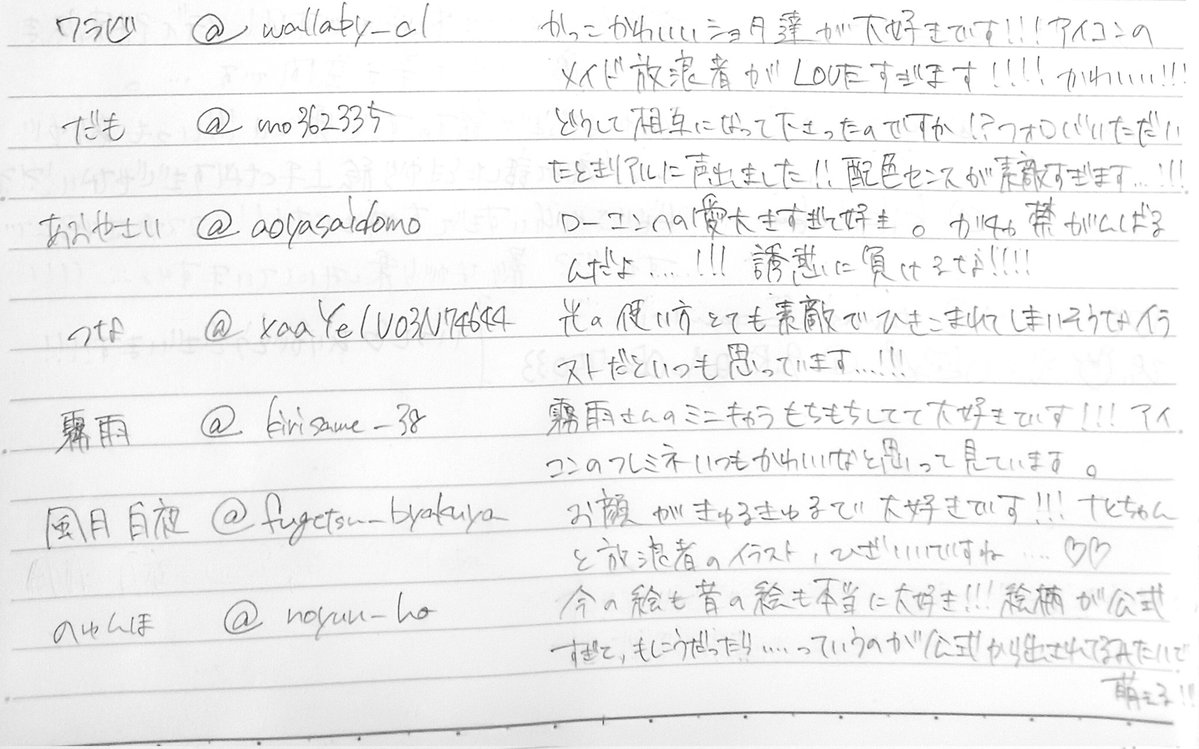 ワラビ @wallaby_cl かっこかわいいショタ達が大好きです!!!アイコンの
メイド放浪者がLOVEすぎます!!!! かわいい!!!
だも @mo362335 どうして相互になって下さったのですか!?フォロバいただい
たときリアルに声出ました!! 配色センスが素敵すぎます…!!!
あおやさい @aoyasaidomo ローコンへの愛大きすぎて好き。がんばる
んだよ…!!! 誘惑に負けるな!!!!
つな @xaaYelV03N74644 光の使い方とても素敵でひきこまれてしまいそうなイラ
ストだといつも思っています…!!!
霧雨 @kirisame_38 霧雨さんのミニキャラもちもちしてて大好きです!!! アイ
コンのフレミネいつもかわいいなと思って見ています。
風月白夜 @fugetsu_byakuya お顔がきゅるきゅるで大好きです!!! ナヒちゃん
と放浪者のイラスト、ひざいいですね….♡♡
のゅんほ @noyun_ho 今の絵も昔の絵も本当に大好き!!! 絵柄が公式
すぎて、もしこうだったら….っていうのが公式から出されてるみたいで
萌える!!